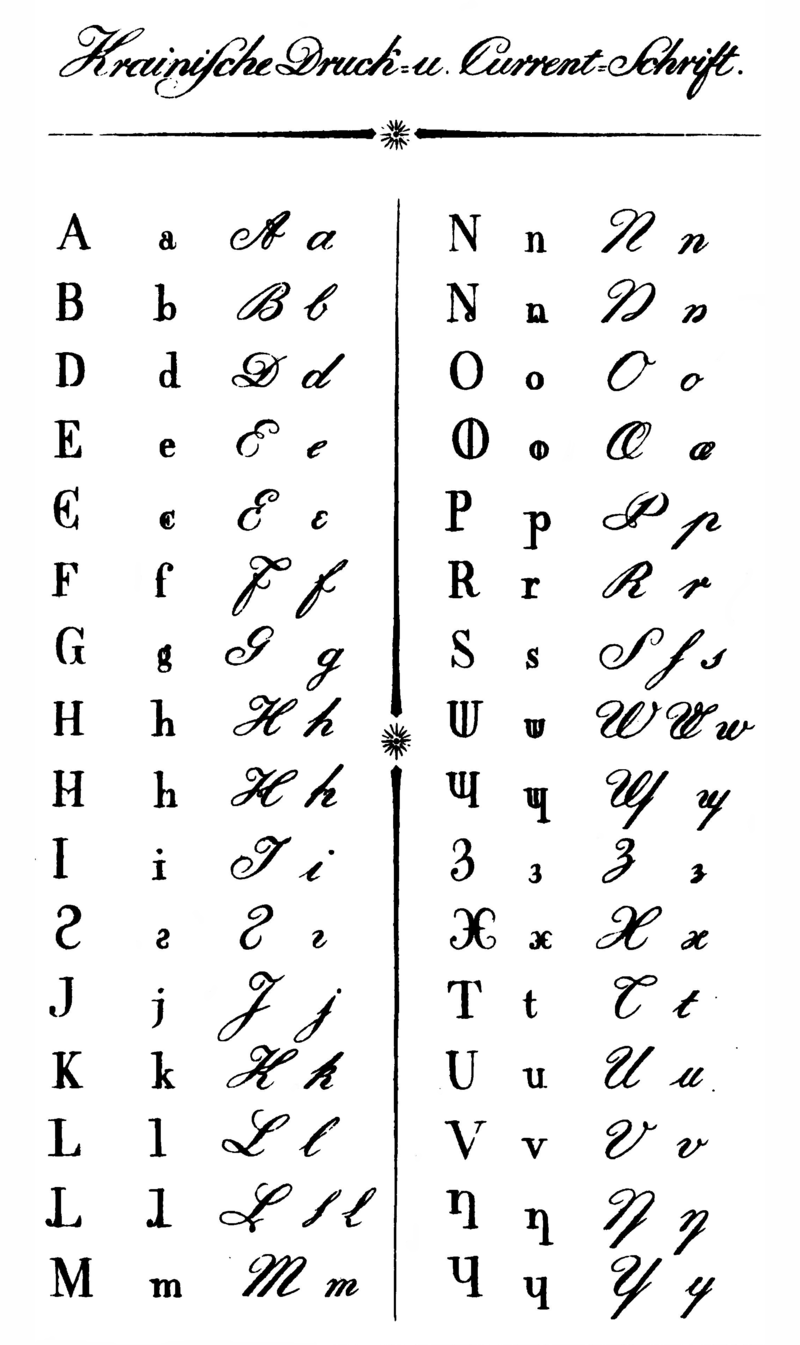 Krainiſche Druck=u. Current=Schrift.
A a A a
B b B b
D d D d
E e E e
Є є Ɛ ɛ
F f F f
G g G g
H h H h
Ⱨ ⱨ Ⱨ ⱨ
I i I i
Ƨ ƨ Ƨ ƨ
J j J j
K k K k
L l L l
M m M m
N n N n
O o O o
Ф ф Œ œ
P p P p
R r R r
S s S ſ s
Ш ш W W w
Щ щ
З з З з
Ж ж Ж ж
T t T t
U u U u
V v V v
Ƞ ƞ Ƞ ƞ
Ч ч Ч ч